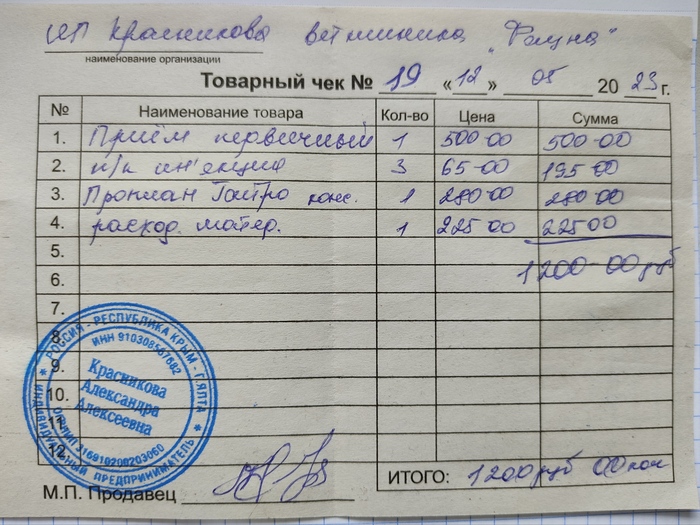 ИП Красникова ветклиника "Фауна"
наименование организации
Товарный чек № 19 «12» 05 2023 г.
№ Наименование товара Кол-во Цена Сумма
1. Приём первичный 1 500-00 500-00
2. п/к ин'екция 3 65-00 195-00
3. Проплан Гастро конс. 1 280-00 280-00
4. расход. матер. 1 225 00 225 00
5.
1200-00 руб
6.
7.
8.
9.
10.
11.
12.
РОССИЯ - РЕСПУБЛИКА КРЫМ - Г.ЯЛТА
ИНН 910308567662
Красникова
Александра
Алексеевна
ОГРНИП 316910200203060
ИНДИВИДУАЛЬНЫЙ ПРЕДПРИНИМАТЕЛЬ
ИТОГО: 1200 руб 00 коп
М.П. Продавец